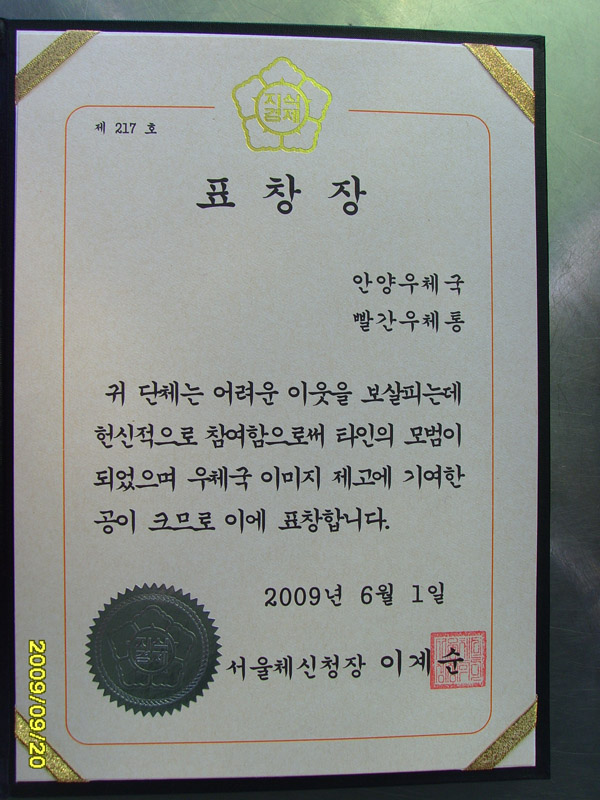 지식
경제
제 217 호
표 창 장
안양우체국
빨간우체통
귀 단체는 어려운 이웃을 보살피는데
헌신적으로 참여함으로써 타인의 모범이
되었으며 우체국 이미지 제고에 기여한
공이 크므로 이에 표창합니다.
2009년 6월 1일
지식
경제
서울체신청장 이계순
2009/09/20